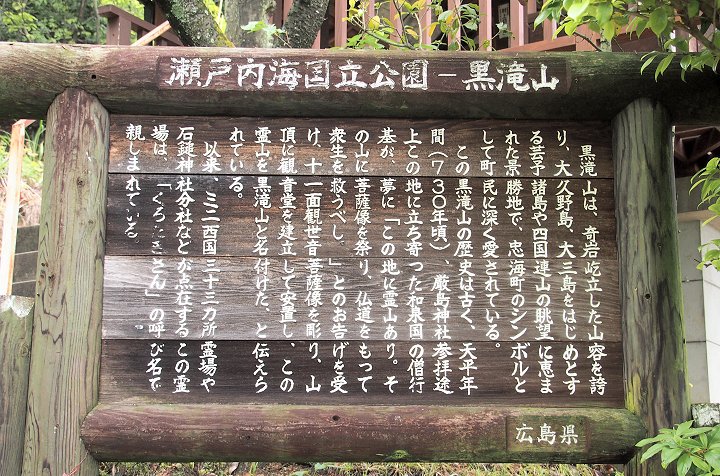 瀬戸内海国立公園－黒滝山
黒滝山は、奇岩屹立した山容を誇
り、大久野島、大三島をはじめとす
る芸予諸島や四国連山の眺望に恵ま
れた景勝地で、忠海町のシンボルと
して町民に深く愛されている。
この黒滝山の歴史は古く、天平年
間（７３０年頃）、厳島神社参拝途
上この地に立ち寄った和泉国の僧行
基が、夢に「この地に霊山あり。そ
の山に菩薩像を祭り、仏道をもって
衆生を救うべし。」とのお告げを受
け、十一面観世音菩薩像を彫り、山
頂に観音堂を建立して安置し、この
霊山を黒滝山と名付けた、と伝えら
れている。
以来、ミニ西国三十三カ所霊場や
石鎚神社分社などが点在するこの霊
場は、「くろたきさん」の呼び名で
親しまれている。
広島県